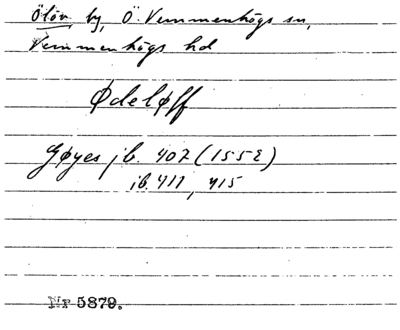 Ölöv by, Ö. Vemmenhögs sn,
Vemmenhögs hd
Ødeløff
Gøyes jb. 407 (1552)
ib. 411, 415
Nr 5879.